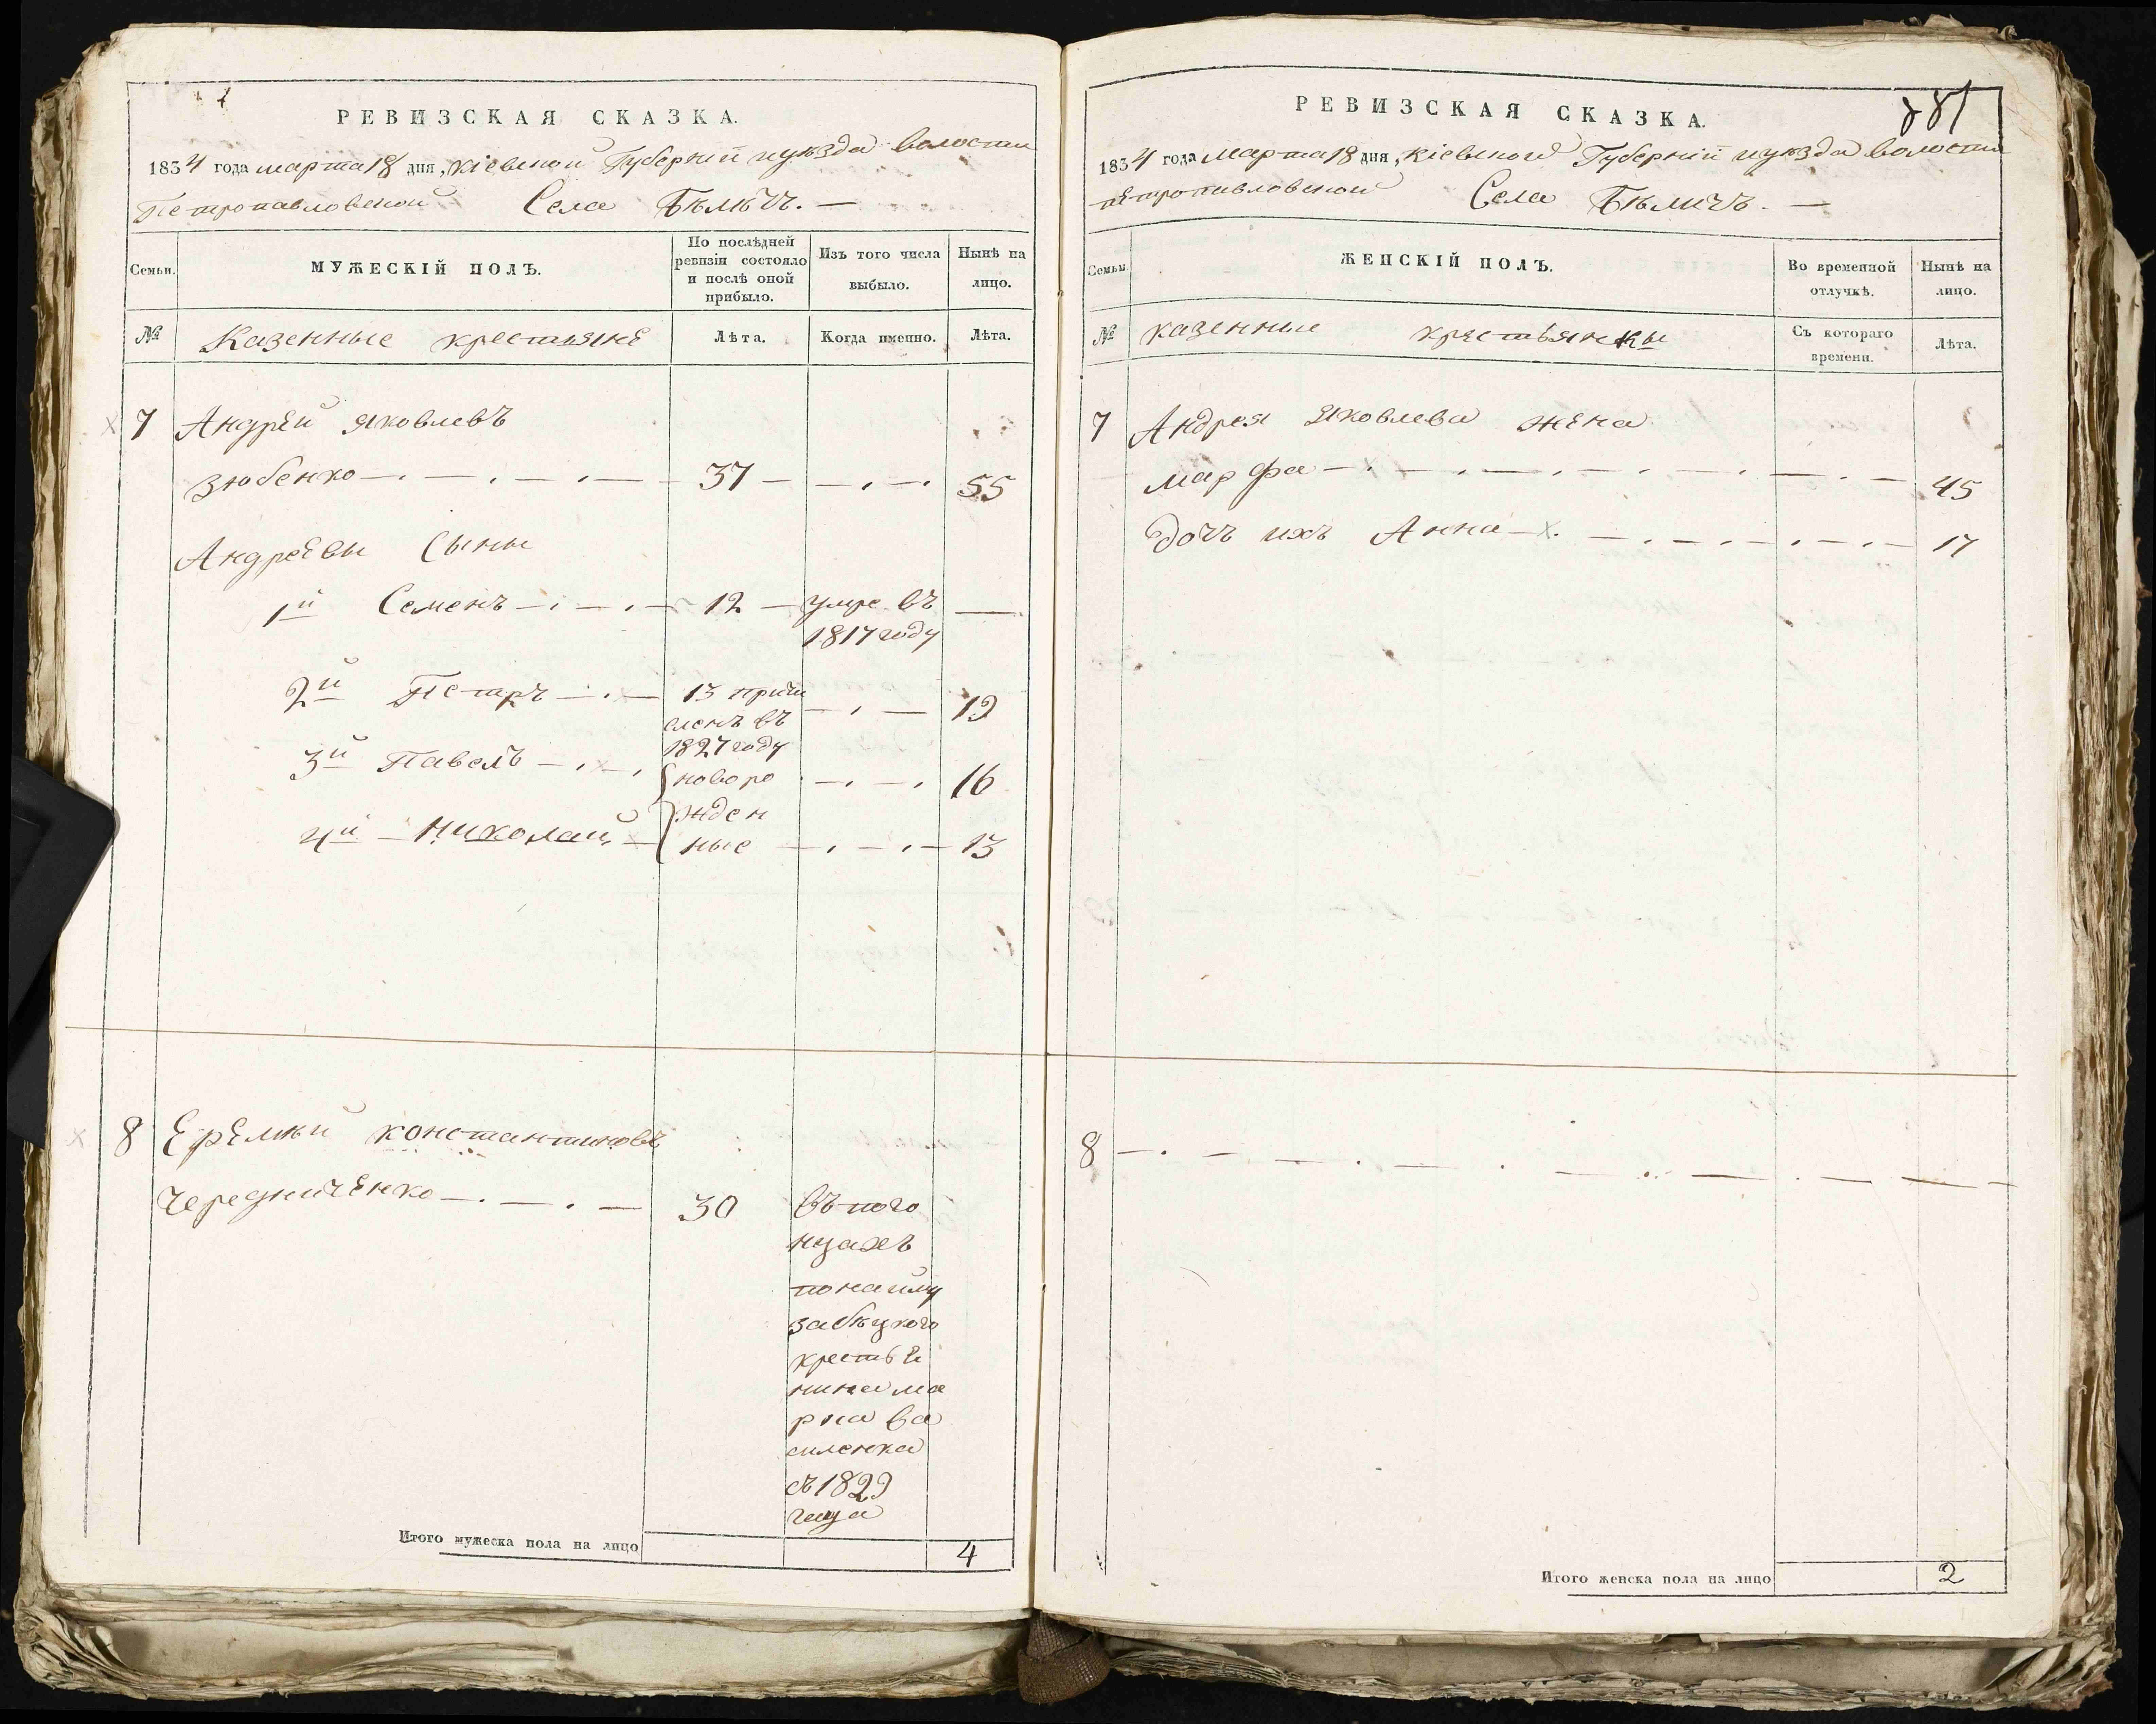 РЕВИЗСКАЯ СКАЗКА.
1834 года марта 18 дня, Кіевской Губерніи и уѣзда волости
Петропавловской Села Бѣличъ. —
Семьи.
МУЖЕСКІЙ ПОЛЪ.
По послѣдней
ревизіи состояло
и послѣ оной
прибыло.
Изъ того числа
выбыло.
Нынѣ на
лицо.
№ Казенные крестьяне
Лѣта.
Когда именно.
Лѣта.
7 Андрей Яковлевъ
Зюбенко 37 55
Андреевы Сыны
1й Семенъ 12 умре въ —
1817 году
2й Петръ 13 причи 19
сленъ въ
1827 году
3й Павелъ новоро 16
жден
4й Николай ные 13
8 Еремѣй Константиновъ
Чередниченко 30 въ пого
нцахъ
по найму
за бѣцкого
крестья
нина ма
рка Ва
силенка
съ 1829
года
Итого мужеска пола на лицо 4
281
РЕВИЗСКАЯ СКАЗКА.
1834 года Марта 18 дня, Кіевской Губерніи и уѣзда волости
Петропавловской Села Бѣличъ. —
Семьи
ЖЕНСКІЙ ПОЛЪ.
Во временной
отлучкѣ.
Нынѣ на
лицо.
№ казенные крестьянки
Съ котораго
времени.
Лѣта.
7 Андрея Яковлева жена
Марфа 45
дочь ихъ Анна 17
8
Итого женска пола на лицо 2